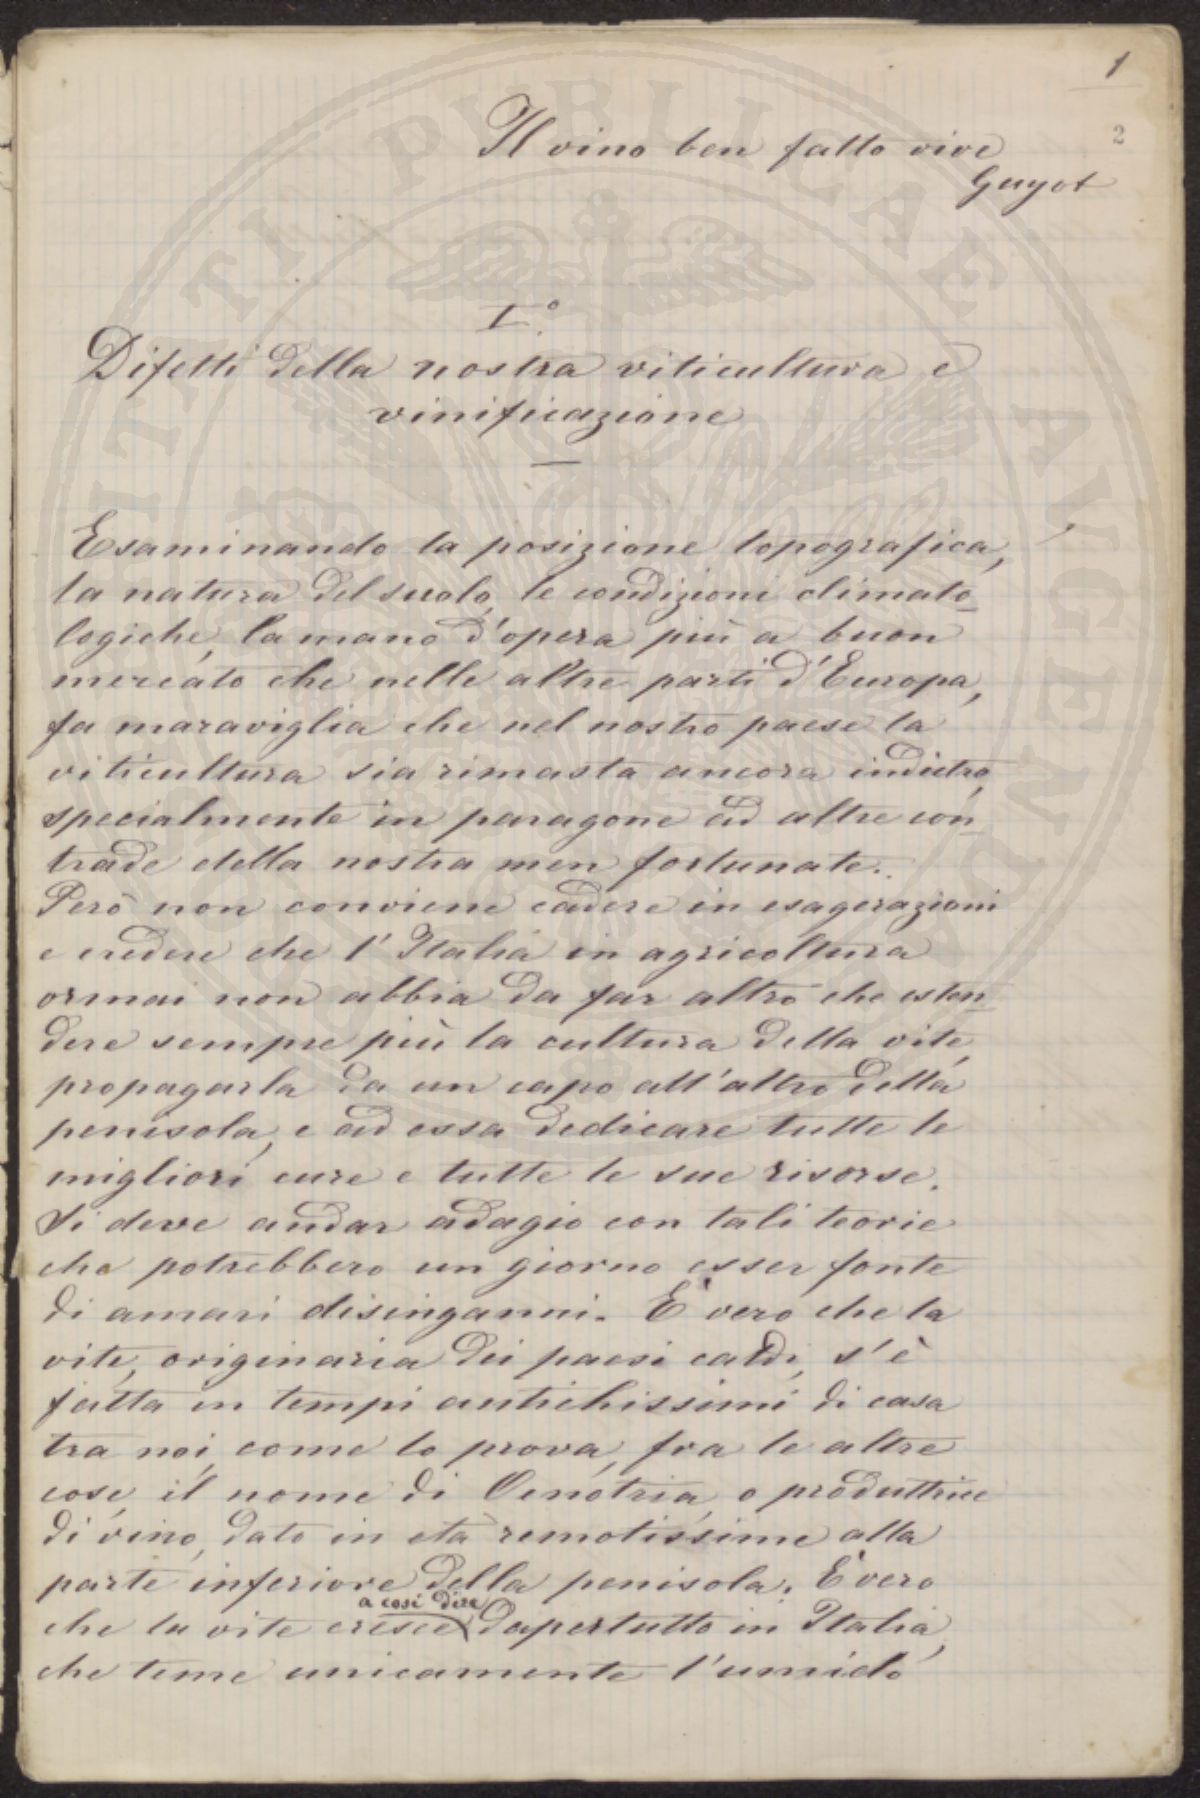 1
2
Il vino ben fatto vive
Guyot
I.º
Difetti della nostra viticultura e
vinificazione
Esaminando la posizione topografica,
la natura del suolo, le condizioni climato-
logiche, la mano d'opera più a buon
mercato che nelle altre parti d'Europa,
fa maraviglia che nel nostro paese la
viticultura sia rimasta ancora indietro,
specialmente in paragone ad altre con-
trade della nostra men fortunate.
Però non conviene cadere in esagerazioni
e credere che l'Italia in agricoltura
ormai non abbia da far altro che esten-
dere sempre più la cultura della vite,
propagarla da un capo all'altro della
penisola, e ad essa dedicare tutte le
migliori cure e tutte le sue risorse.
Si deve andar adagio con tali teorie
che potrebbero un giorno esser fonte
di amari disinganni. È vero che la
vite, originaria dei paesi caldi, s'è
fatta in tempi antichissimi di casa
tra noi, come lo prova, fra le altre
cose, il nome di Oenotria, o produttrice
di vino, dato in età remotissime alla
parte inferiore della penisola. È vero
a così dire
che la vite cresce dapertutto in Italia,
che teme unicamente l'umido
UTILITATI PUBLICAE AUGENDAE